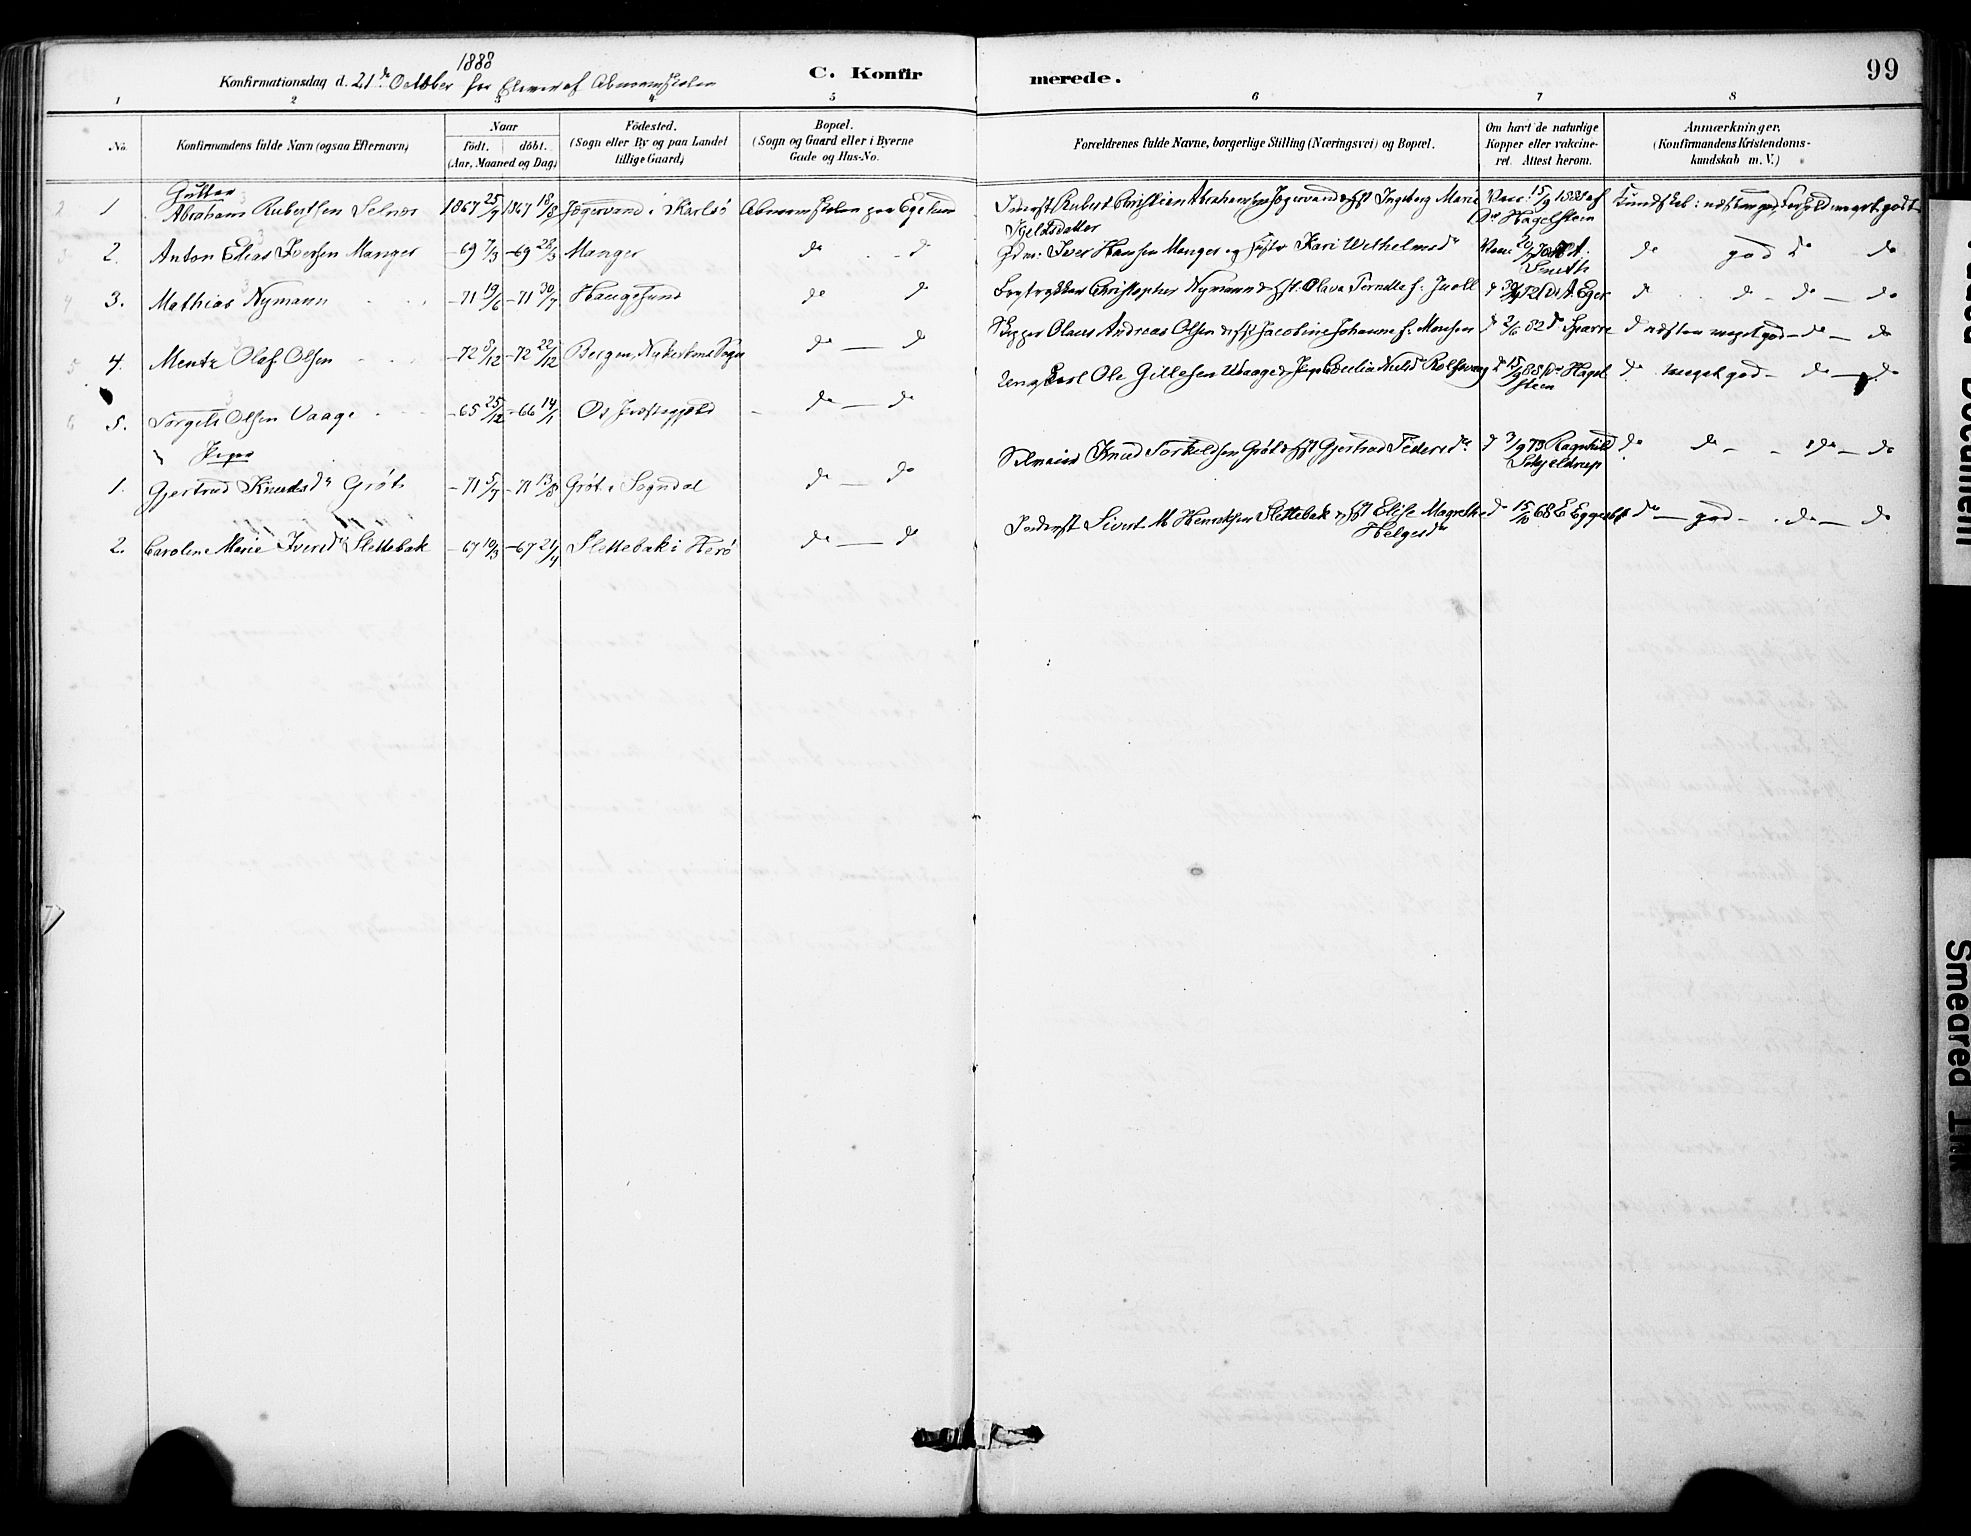 1888
Konfirmationsdag d. 21de October for Elever af Abnormskolen
C. Konfirmerede.
99
1 2 3 4 5 6 7 8
No. Konfirmandens fulde Navn (ogsaa Efternavn) Naar født. døbt. (Aar, Maaned og Dag) Fødested. (Sogn eller By og paa Landet tillige Gaard) Bopæl. (Sogn og Gaard eller i Byerne Gade og Hus-No. Forældrenes fulde Navne, borgerlige Stilling (Næringsvei) og Bopæl. Om havt de naturlige Kopper eller vakcineret. Attest herom. Anmærkninger. (Konfirmandens Kristendomskundskab m. V.)
Gutter
1 Abraham Rubertsen Selnæs 1867 25/7 1867 18/8 Jøgervand i Karlsø Abnormskolen paa Egelund Inderst Rubert Christian Abrahamsen Jøgervand & Hst Ingeborg Marie Kjeldsdatter Vacc: 15/9 1888 af Dr Hagelsteen Kundskab: næsten god, Forhold meget godt
2. Anton Elias Iversen Manger -69 7/3 -69 28/3 Manger do do Gdm: Iver Hansen Manger og Hustru Kari Wilhelmsdr Smith do god do do
3. Mathias Nymann -71 19/6 -71 30/7 Haugesund do do Bogtrykker Christopher Nymann & Hst: Olava f: Juell A. Eger do do do do
4. Mentz Olaf Olsen -72 8/12 -72 22/12 Bergen, Nykirkens Sogn do do Skipper Olaus Andreas Olsen & Hst Jacobine Johanne f: Monsen do 2/6 82 Dr Sparre do næsten meget god do do
5. Torgils Olsen Vaage -65 25/12 -66 14/1 Os Præstegjeld do do Ungkarl Ole Gillesen Vaage & Pige Cecilia Nilsdr Rolfsvaag do 15/9 88 Dr Hagelsteen do meget god do do
Piger
1. Gjertrud Knudsdr Grøt -71 5/7 -71 13/8 Grøt i Sogndal do do Selveier Knud Torkeldsen Grøt & Hst Gjertrud Pedersdr do 3/9 73 Ragnhild Schjeldrup do do do do
2. Caroline Marie Iversdr Slettebak -67 10/3 -67 21/4 Slettebak i Herø do do Inderst Sivert M Henriksen Slettebak & Hst Elise Magrethe Helgesdr do 15/10 68 E Eggesbø do god do do